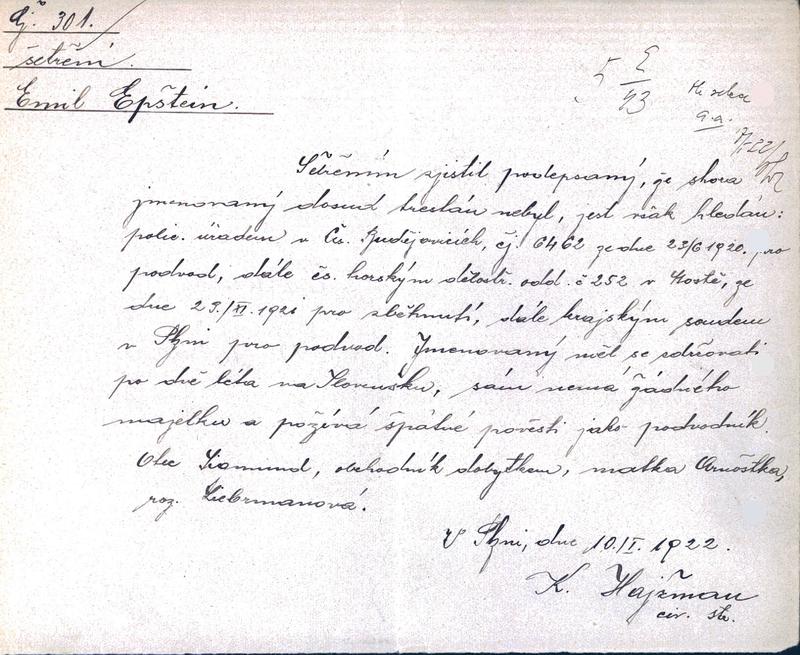 Čj. 301.
šetření.
Emil Epštein.
5 E
43
7/I-22
Šetřením zjistil podepsaný, že shora
jmenovaný dosud trestán nebyl, jest však hledán:
polic. úřadem v Čes. Budějovicích, čj. 6462 ze dne 23/6 1920. pro
podvod, dále čs. horským dělostř. odd. č 252 v Mostě, ze
dne 29./XI. 1921 pro zběhnutí, dále krajským soudem
v Plzni pro podvod. Jmenovaný měl se zdržovati
po dvě léta na Slovensku, sám nemá žádného
majetku a požívá špatné pověsti jako podvodník.
Otec Siamund, obchodník dobytkem, matka Arnoštka,
roz. Liebrmanová.
V Plzni, dne 10./I. 1922.
K. Hajžman
civ. str.